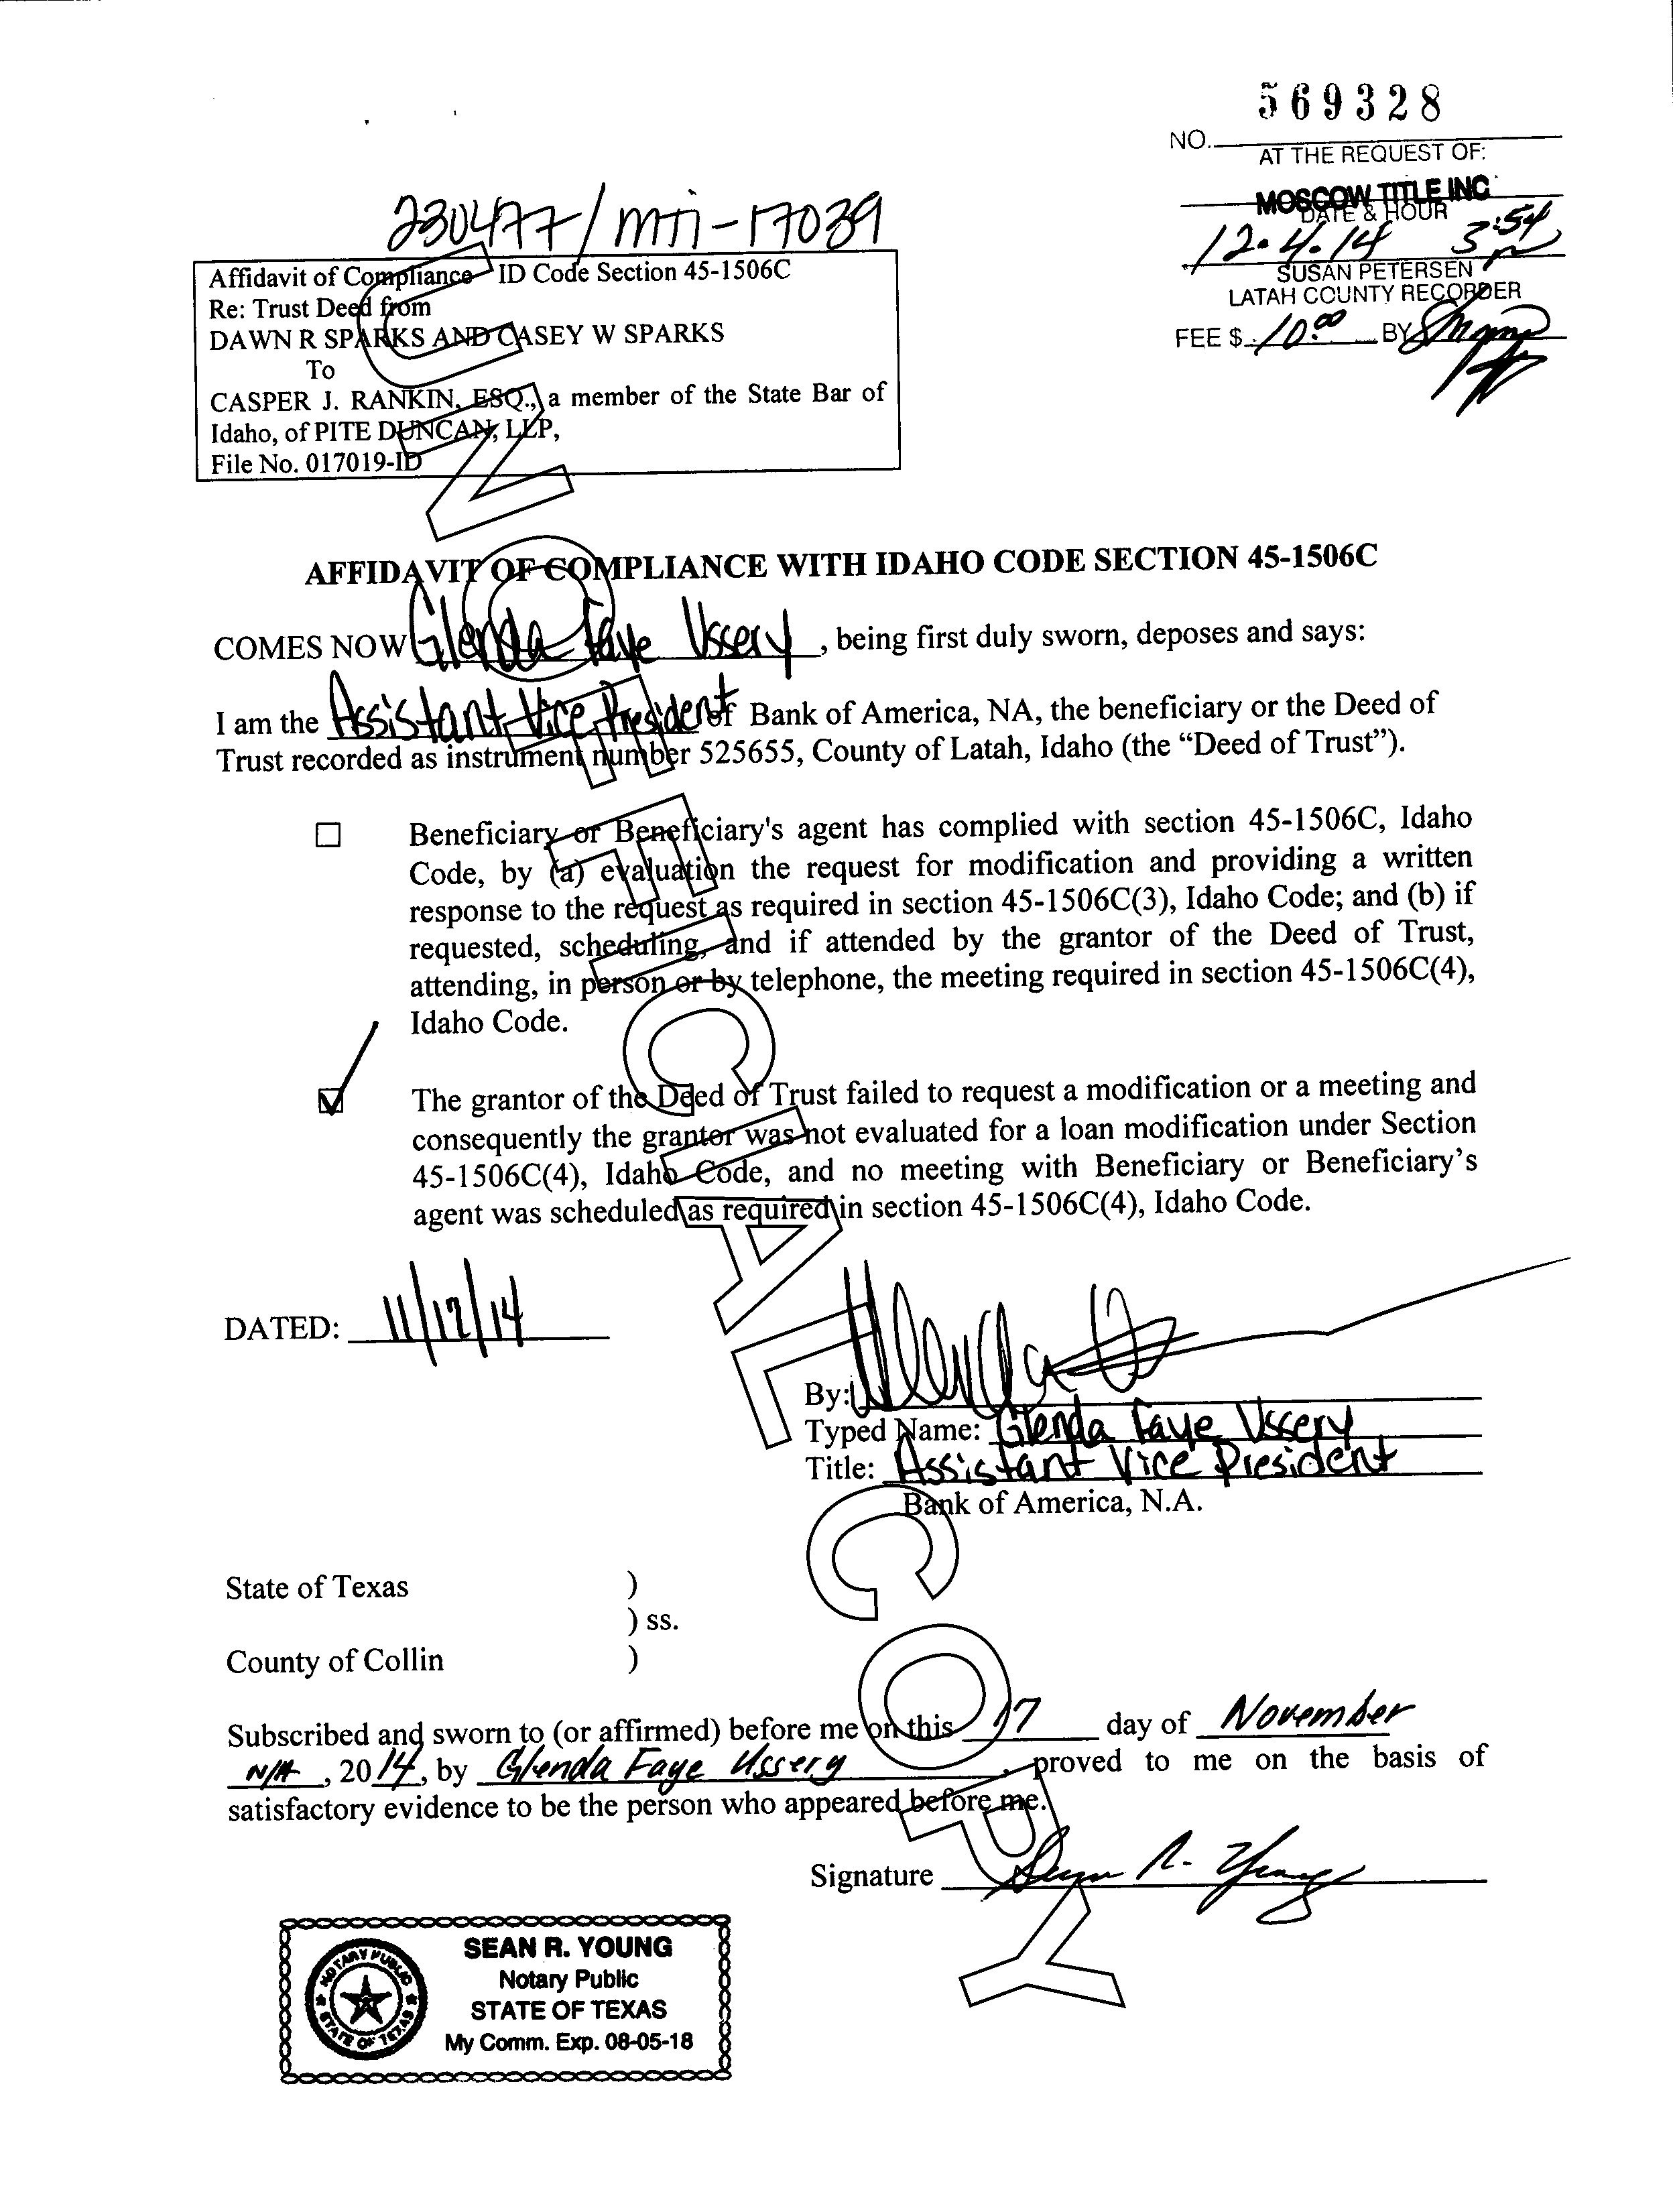 569328
NO.
AT THE REQUEST OF:
MOSCOW TITLE INC
DATE & HOUR
12.4.14 3:54
SUSAN PETERSEN
LATAH COUNTY RECORDER
FEE $ 10.00 BY
230477/MTI-17039
Affidavit of Compliance ID Code Section 45-1506C
Re: Trust Deed from
DAWN R SPARKS AND CASEY W SPARKS
To
CASPER J. RANKIN, ESQ., a member of the State Bar of
Idaho, of PITE DUNCAN, LLP,
File No. 017019-ID
AFFIDAVIT OF COMPLIANCE WITH IDAHO CODE SECTION 45-1506C
COMES NOW Glenda Faye Ussery, being first duly sworn, deposes and says:
I am the Assistant Vice President of Bank of America, NA, the beneficiary or the Deed of
Trust recorded as instrument number 525655, County of Latah, Idaho (the “Deed of Trust”).
☐ Beneficiary or Beneficiary's agent has complied with section 45-1506C, Idaho
Code, by (a) evaluation the request for modification and providing a written
response to the request as required in section 45-1506C(3), Idaho Code; and (b) if
requested, scheduling, and if attended by the grantor of the Deed of Trust,
attending, in person or by telephone, the meeting required in section 45-1506C(4),
Idaho Code.
☑ The grantor of the Deed of Trust failed to request a modification or a meeting and
consequently the grantor was not evaluated for a loan modification under Section
45-1506C(4), Idaho Code, and no meeting with Beneficiary or Beneficiary’s
agent was scheduled as required in section 45-1506C(4), Idaho Code.
DATED: 11/17/14
By:
Typed Name: Glenda Faye Ussery
Title: Assistant Vice President
Bank of America, N.A.
State of Texas )
) ss.
County of Collin )
Subscribed and sworn to (or affirmed) before me on this 17 day of November
N/A, 2014, by Glenda Faye Ussery, proved to me on the basis of
satisfactory evidence to be the person who appeared before me.
Signature Sean R. Young
SEAN R. YOUNG
Notary Public
STATE OF TEXAS
My Comm. Exp. 08-05-18
NOTARY PUBLIC
STATE OF TEXAS
UNOFFICIAL COPY